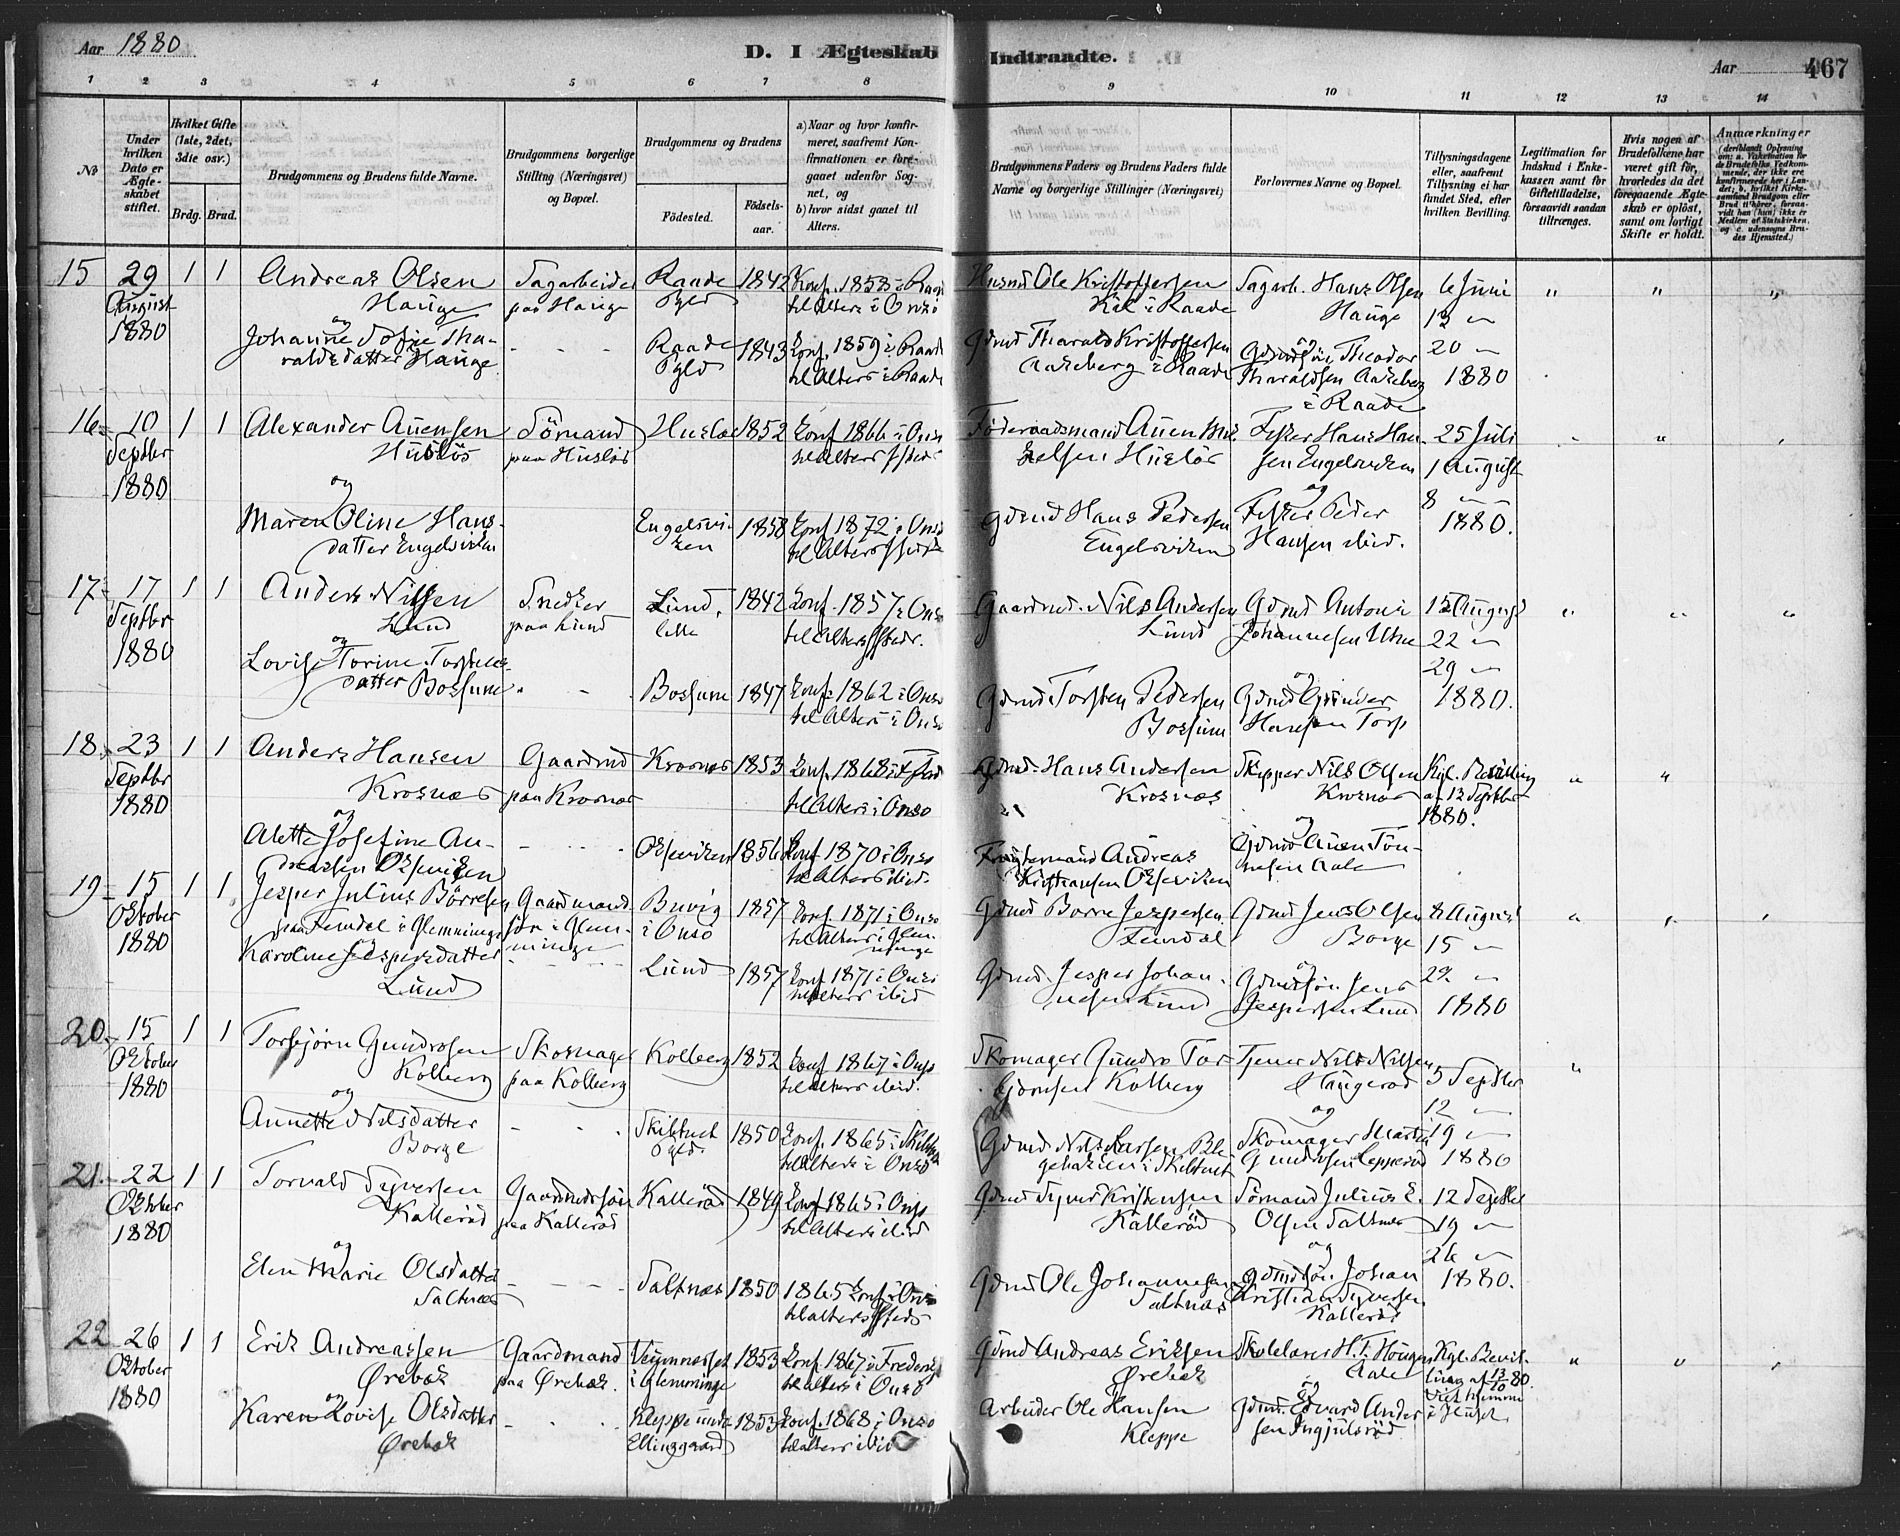 Aar 1880
D. I Ægteskab Indtraadte.
Aar 467
1 2 3 4 5 6 7 8 9 10 11 12 13 14
No
Under hvilken Dato er Ægteskabet stiftet.
Hvilket Gifte (1ste, 2det, 3die osv.)
Brdg. Brud.
Brudgommens og Brudens fulde Navne.
Brudgommens borgerlige Stilling (Næringsvei) og Bopæl.
Brudgommens og Brudens
Fødested.
Fødselsaar.
a) Naar og hvor konfirmeret, saafremt Konfirmationen er foregaaet udenfor Sognet, og
b) hvor sidst gaaet til Alters.
Brudgommens Faders og Brudens Faders fulde Navne og borgerlige Stillinger (Næringsvei)
Forlovernes Navne og Bopæl.
Tillysningsdagene eller, saafremt Tillysning ei har fundet Sted, efter hvilken Bevilling.
Legitimation for Indskud i Enkekassen samt for Giftetilladelse, forsaavidt saadan tiltrænges.
Hvis nogen af Brudefolkene har været gift før, hvorledes da det foregaaende Ægteskab er opløst, samt om lovligt Skifte er holdt.
Anmærkninger
15 29 August 1880 1 1
Andreas Olsen Hauge
Sagarbeider paa Hauge
Raade Pgld 1842
Konf. 1858 i Raade
til Alters i Onsö
Husmd Ole Kristoffersen
i Raade
Sagarb. Hans Olsen Hauge
6 Juni
13 "
20 "
1880
og
Johanne Sofie Tharaldsdatter Hauge
Raade Pgld 1843
Konf. 1859 i Raade
til Alters i Raade
Gdmd Tharald Kristoffersen
Aakeberg i Raade
og Gdmdsön Theodor
Tharaldsen Aakeberg
i Raade
16 10 Septbr 1880 1 1
Alexander Auensen Huslös
Sömand paa Huslös
Huslös 1852
Konf 1866 i Onsö
til Alters ssteds
Föderaadsmand Auen Mikkelsen Huslös
Fisker Hans Hansen Engelsviken
25 Juli
1 August
8 "
1880.
og
Maren Oline Hansdatter Engelsviken
Engelsviken 1858
Konf 1872 i Onsö
til Alters ssteds
Gdmd Hans Pedersen
Engelsviken
og
Fisker Peder
Hansen ibid.
17 17 Septbr 1880 1 1
Anders Nilsen Lund
Snedker paa Lund
Lund, lille 1842
Konf. 1857 i Onsö
til Alters sstedr.
Gaardmd. Nils Andersen
Lund
Gdmd Anton
Johannesen Utne
15 August
22 "
29 "
1880.
og
Lovise Torine Torstensdatter Bossum
Bossum 1847
Konf. 1862 i Onsö
til Alters i Onsö
Gdmd Torsten Pedersen
Bossum
og
Gdmd Gunder
Hansen Torp
18 23 Septbr 1880 1 1
Anders Hansen Krosnæs
Gaardmd paa Krosnæs
Krosnæs 1853
Konf. 1868 i
til Alters i Onsö
Gdmd. Hans Andersen
Krosnæs
Skipper Nils Olsen
Krosnæs
Kgl. Bevilling
af 12 Septbr
1880.
og
Alette Josefine Andreasen Oksviken
Oksviken 1856
Konf 1870 i Onsö
til Alters ibid.
Andreas
Kristiansen Oksviken
og
Gdmd Auen Tönnesen Aale
19 15 Oktober 1880 1 1
Jesper Julius Börresen
paa Femdal i Glemminge
Gaardmandssön i Glemminge
Buvig i Onsö 1857
Konf. 1871 i Onsö
til Alters i Glemminge
Gdmd Börre Jespersen
Femdal
Gdmd Jens Olsen
Borge
8 August
15 "
22 "
1880
og
Karoline Jespersdatter
Lund
Lund 1857
Konf 1871 i Onsö
til Alters ibid
Gdmd. Jesper Johannesen Lund
og
Gdmdsön Jens
Jespersen Lund
20 15 Oktober 1880 1 1
Torbjörn Gundersen Kolberg
Skomager paa Kolberg
Kolberg 1852
Konf 1867 i Onsö
til Alters ibid.
Skomager Gunder Torbjörnsen Kolberg
Tjener Nils Nilsen
Haugeröd
5 Septbr
12 "
19 "
1880
og
Annette Nilsdatter
Borge
Skibtvet Pgld. 1850
Konf. 1865 i Skibtvet
til Alters i Onsö
Gdmd Nils Larsen
i Skibtvet
og
Skomager Martin
Gundersen Lepperöd
21 22 Oktober 1880 1 1
Torvald Syversen
Kalleröd
Gaardmdssön paa Kalleröd
Kalleröd 1849
Konf 1865 i Onsö
til Alters ibid
Gdmd Syver Kristensen
Kalleröd
Sömand Julius E.
Olsen Saltnæs
12 Septbr
19 "
26 "
1880.
og
Elen Marie Olsdatter
Saltnæs
Saltnæs 1850
1865 Konf i Onsö
til alters ssteds
Gdmd Ole Johannesen
Saltnæs
og
Gdmdsön Johan
Kristian Syversen
Kalleröd
22 26 Oktober 1880 1 1
Erik Andreassen
Örebæk
Gaardmand paa Örebæk.
i Glemminge 1853
Konf. 1867 i Fredriks
til alters i Onsö
Gdmd Andreas Eriksen
Örebæk
Skolelærer H. T. Hougen
Aale
Kgl. Bevilling af 13/10 80.
Viet hjemme
i Huset
og
Karen Lovise Olsdatter
Örebæk
Kleppe under
Elinggaard 1853
Konf. 1868 i Onsö
til alters ibid
Arbeider Ole Hansen
Kleppe
og
Gdmd. Edvard Andersen Ingjulsröd